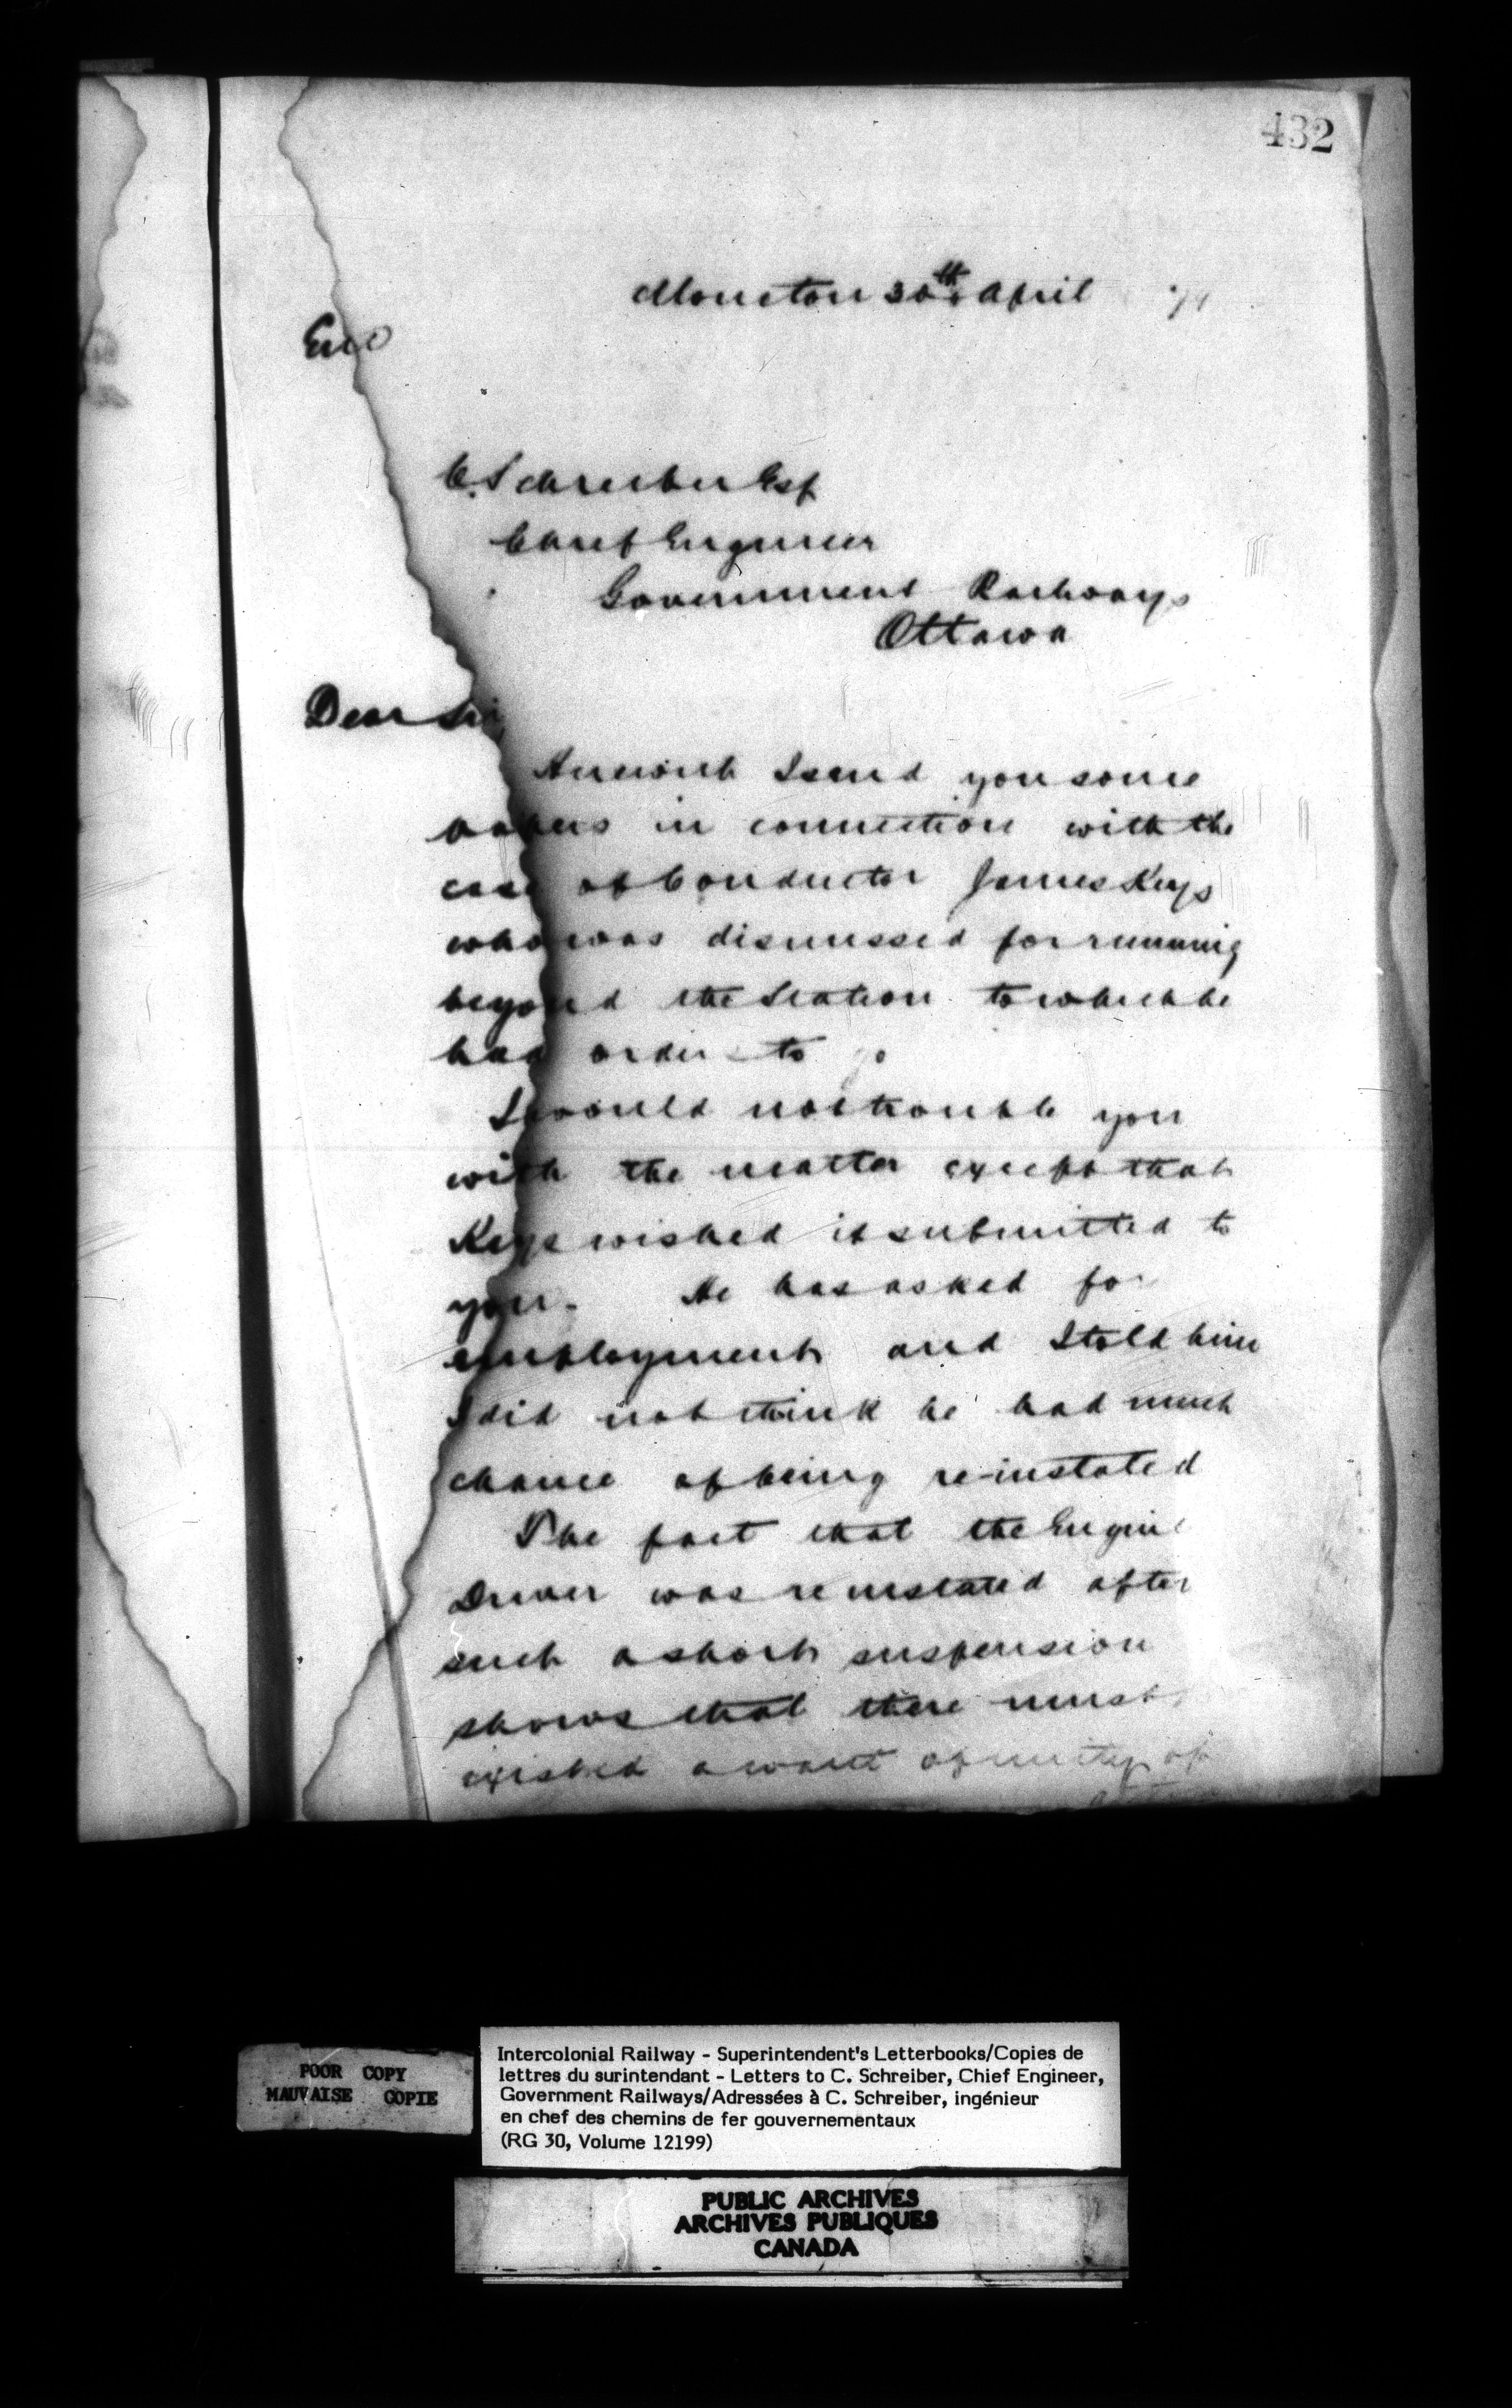 432
Moncton 30th April
C. Schreiber Esq
Chief Engineer
Government Railways
Ottawa
Dear Sir
Herewith I send you some
papers in connection with the
case of Conductor James Keys
who was dismissed for running
beyond the Station to which he
had orders to go
I would not trouble you
with the matter except that
Keys wished it submitted to
you. He has asked for
employment and I told him
I did not think he had much
chance of being re-instated
The fact that the Engine
Driver was reinstated after
such a short suspension
shows that there must
existed a want of unity of
POOR COPY
MAUVAISE COPIE
Intercolonial Railway - Superintendent's Letterbooks/Copies de
lettres du surintendant - Letters to C. Schreiber, Chief Engineer,
Government Railways/Adressées à C. Schreiber, ingénieur
en chef des chemins de fer gouvernementaux
(RG 30, Volume 12199)
PUBLIC ARCHIVES
ARCHIVES PUBLIQUES
CANADA